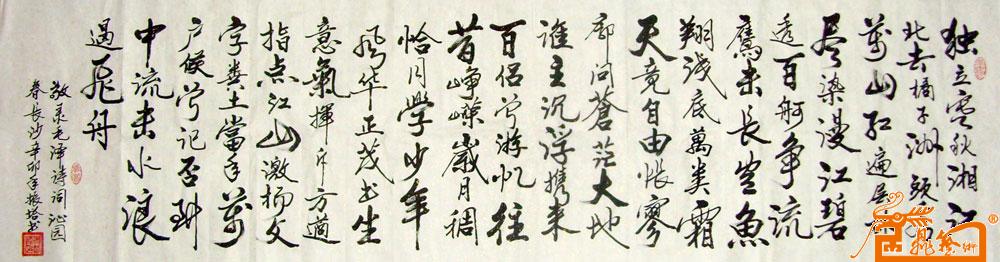 独立寒秋湘江
北去橘子洲頭看
萬山红遍层林
尽染漫江碧
透百舸争流
鷹击长空魚
翔浅底萬类霜
天竞自由怅寥
廓问蒼茫大地
谁主沉浮携来
百侣曾游忆往
昔峥嵘歲月稠
恰同學少年
风华正茂书生
意氣揮斥方遒
指点江山激扬文
字粪土當年萬
户侯曾记否到
中流击水浪
遏飞舟
敬录毛泽诗词沁园
春长沙辛卯年振塔书